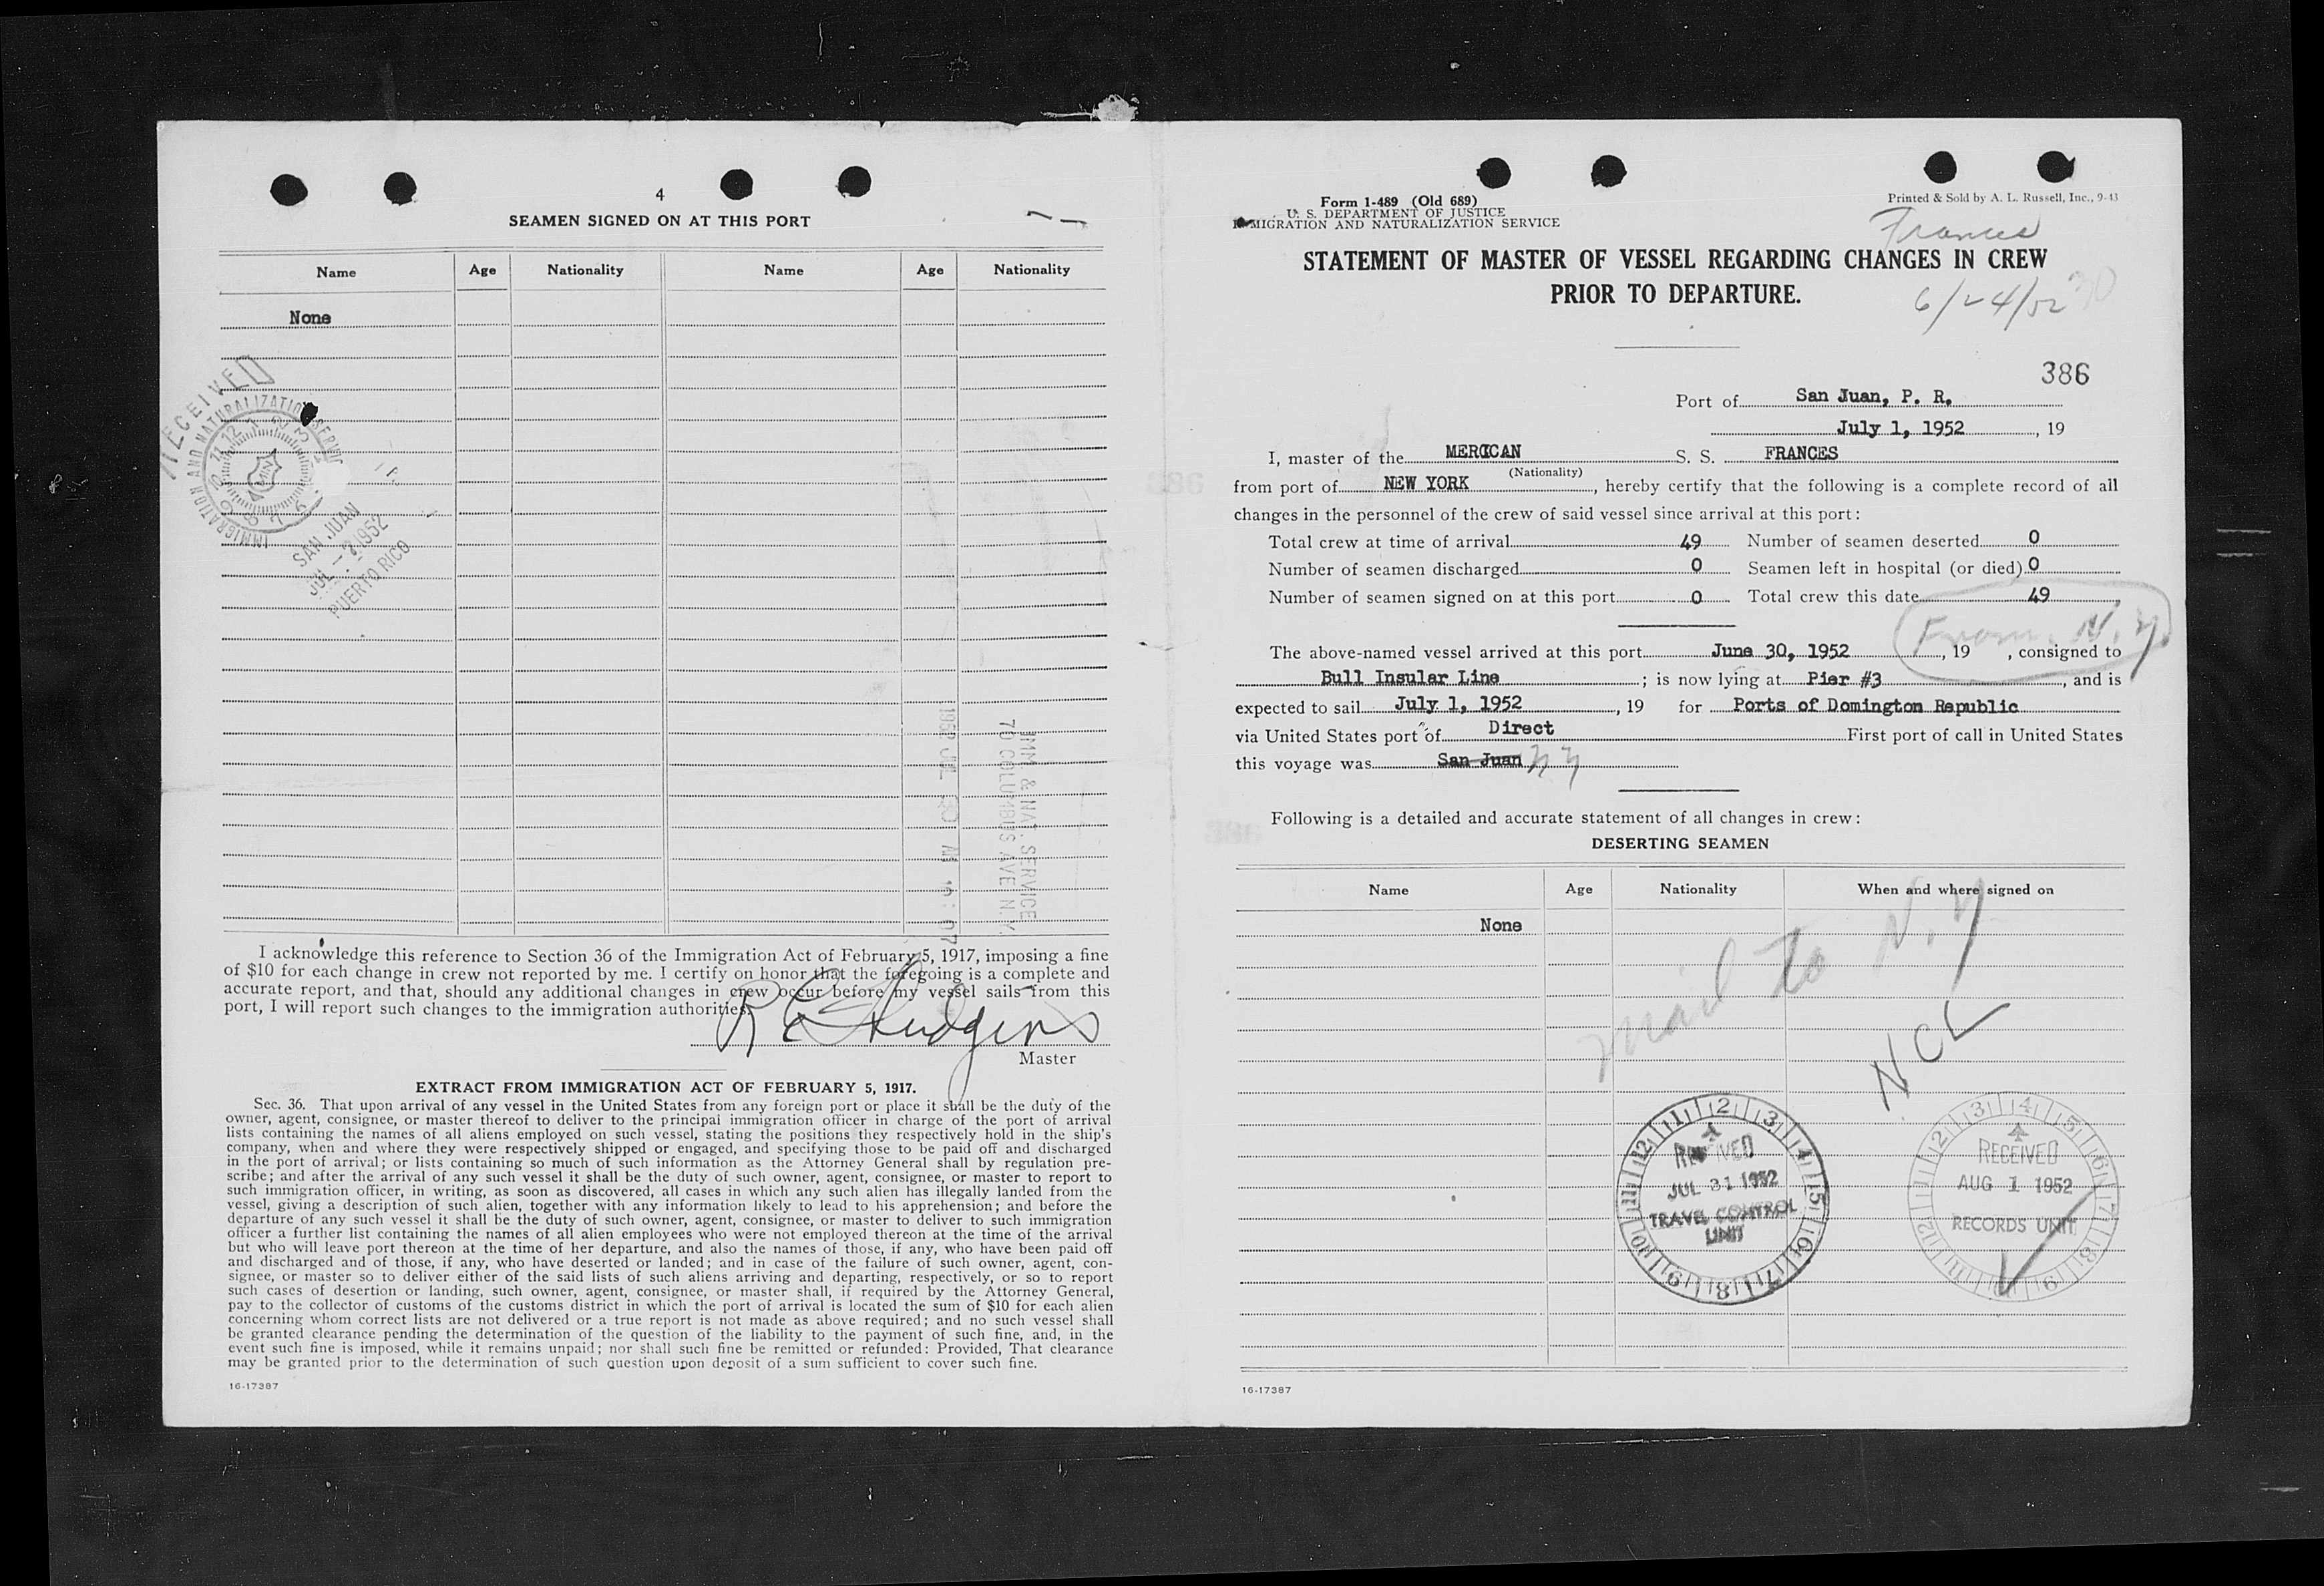 4
SEAMEN SIGNED ON AT THIS PORT
Name Age Nationality Name Age Nationality
None
RECEIVED
IMMIGRATION AND NATURALIZATION SERVICE
SAN JUAN
JUL 1952
PUERTO RICO
IMM & NAT. SERVICE
70 COLUMBUS AVE N.Y.
1952 JUL
I acknowledge this reference to Section 36 of the Immigration Act of February 5, 1917, imposing a fine
of $10 for each change in crew not reported by me. I certify on honor that the foregoing is a complete and
accurate report, and that, should any additional changes in crew occur before my vessel sails from this
port, I will report such changes to the immigration authorities.
Hudgins
Master
EXTRACT FROM IMMIGRATION ACT OF FEBRUARY 5, 1917.
Sec. 36. That upon arrival of any vessel in the United States from any foreign port or place it shall be the duty of the
owner, agent, consignee, or master thereof to deliver to the principal immigration officer in charge of the port of arrival
lists containing the names of all aliens employed on such vessel, stating the positions they respectively hold in the ship's
company, when and where they were respectively shipped or engaged, and specifying those to be paid off and discharged
in the port of arrival; or lists containing so much of such information as the Attorney General shall by regulation pre-
scribe; and after the arrival of any such vessel it shall be the duty of such owner, agent, consignee, or master to report to
such immigration officer, in writing, as soon as discovered, all cases in which any such alien has illegally landed from the
vessel, giving a description of such alien, together with any information likely to lead to his apprehension; and before the
departure of any such vessel it shall be the duty of such owner, agent, consignee, or master to deliver to such immigration
officer a further list containing the names of all alien employees who were not employed thereon at the time of the arrival
but who will leave port thereon at the time of her departure, and also the names of those, if any, who have been paid off
and discharged and of those, if any, who have deserted or landed; and in case of the failure of such owner, agent, con-
signee, or master so to deliver either of the said lists of such aliens arriving and departing, respectively, or so to report
such cases of desertion or landing, such owner, agent, consignee, or master shall, if required by the Attorney General,
pay to the collector of customs of the customs district in which the port of arrival is located the sum of $10 for each alien
concerning whom correct lists are not delivered or a true report is not made as above required; and no such vessel shall
be granted clearance pending the determination of the question of the liability to the payment of such fine, and, in the
event such fine is imposed, while it remains unpaid; nor shall such fine be remitted or refunded: Provided, That clearance
may be granted prior to the determination of such question upon deposit of a sum sufficient to cover such fine.
16-17387
Form 1-489 (Old 689)
U. S. DEPARTMENT OF JUSTICE
IMMIGRATION AND NATURALIZATION SERVICE
Printed & Sold by A. L. Russell, Inc., 9-43
Frances
STATEMENT OF MASTER OF VESSEL REGARDING CHANGES IN CREW
PRIOR TO DEPARTURE.
6/24/52
386
Port of San Juan, P. R.
July 1, 1952, 19
I, master of the MERICAN S. S. FRANCES
(Nationality)
from port of NEW YORK, hereby certify that the following is a complete record of all
changes in the personnel of the crew of said vessel since arrival at this port:
Total crew at time of arrival 49 Number of seamen deserted 0
Number of seamen discharged 0 Seamen left in hospital (or died) 0
Number of seamen signed on at this port 0 Total crew this date 49
From N. Y.
The above-named vessel arrived at this port June 30, 1952, 19 , consigned to
Bull Insular Line; is now lying at Pier #3, and is
expected to sail July 1, 1952, 19 for Ports of Domington Republic
via United States port of Direct First port of call in United States
this voyage was San Juan
Following is a detailed and accurate statement of all changes in crew:
DESERTING SEAMEN
Name Age Nationality When and where signed on
None
mail to N. Y
NCL
RECEIVED
JUL 31 1952
TRAVEL CONTROL
UNIT
RECEIVED
AUG 1 1952
RECORDS UNIT
16-17387